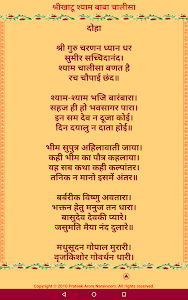 श्रीखाटू श्याम बाबा चालीसा
दोहा
श्री गुरु चरणन ध्यान धर
सुमीर सच्चिदानंद।
श्याम चालीसा बणत है
रच चौपाई छंद।।
श्याम-श्याम भजि बारंबारा।
सहज ही हो भवसागर पारा।
इन सम देव न दूजा कोई।
दिन दयालु न दाता होई।।
भीम सुपुत्र अहिलावाती जाया।
कही भीम का पौत्र कहलाया।
यह सब कथा कही कल्पांतर।
तनिक न मानो इसमें अंतर।।
बर्बरीक विष्णु अवतारा।
भक्तन हेतु मनुज तन धारा।
बासुदेव देवकी प्यारे।
जसुमति मैया नंद दुलारे।।
मधुसूदन गोपाल मुरारी।
वृजकिशोर गोवर्धन धारी।
Copyright © 2010 Prateek Arora Nareincorn. All rights reserved.